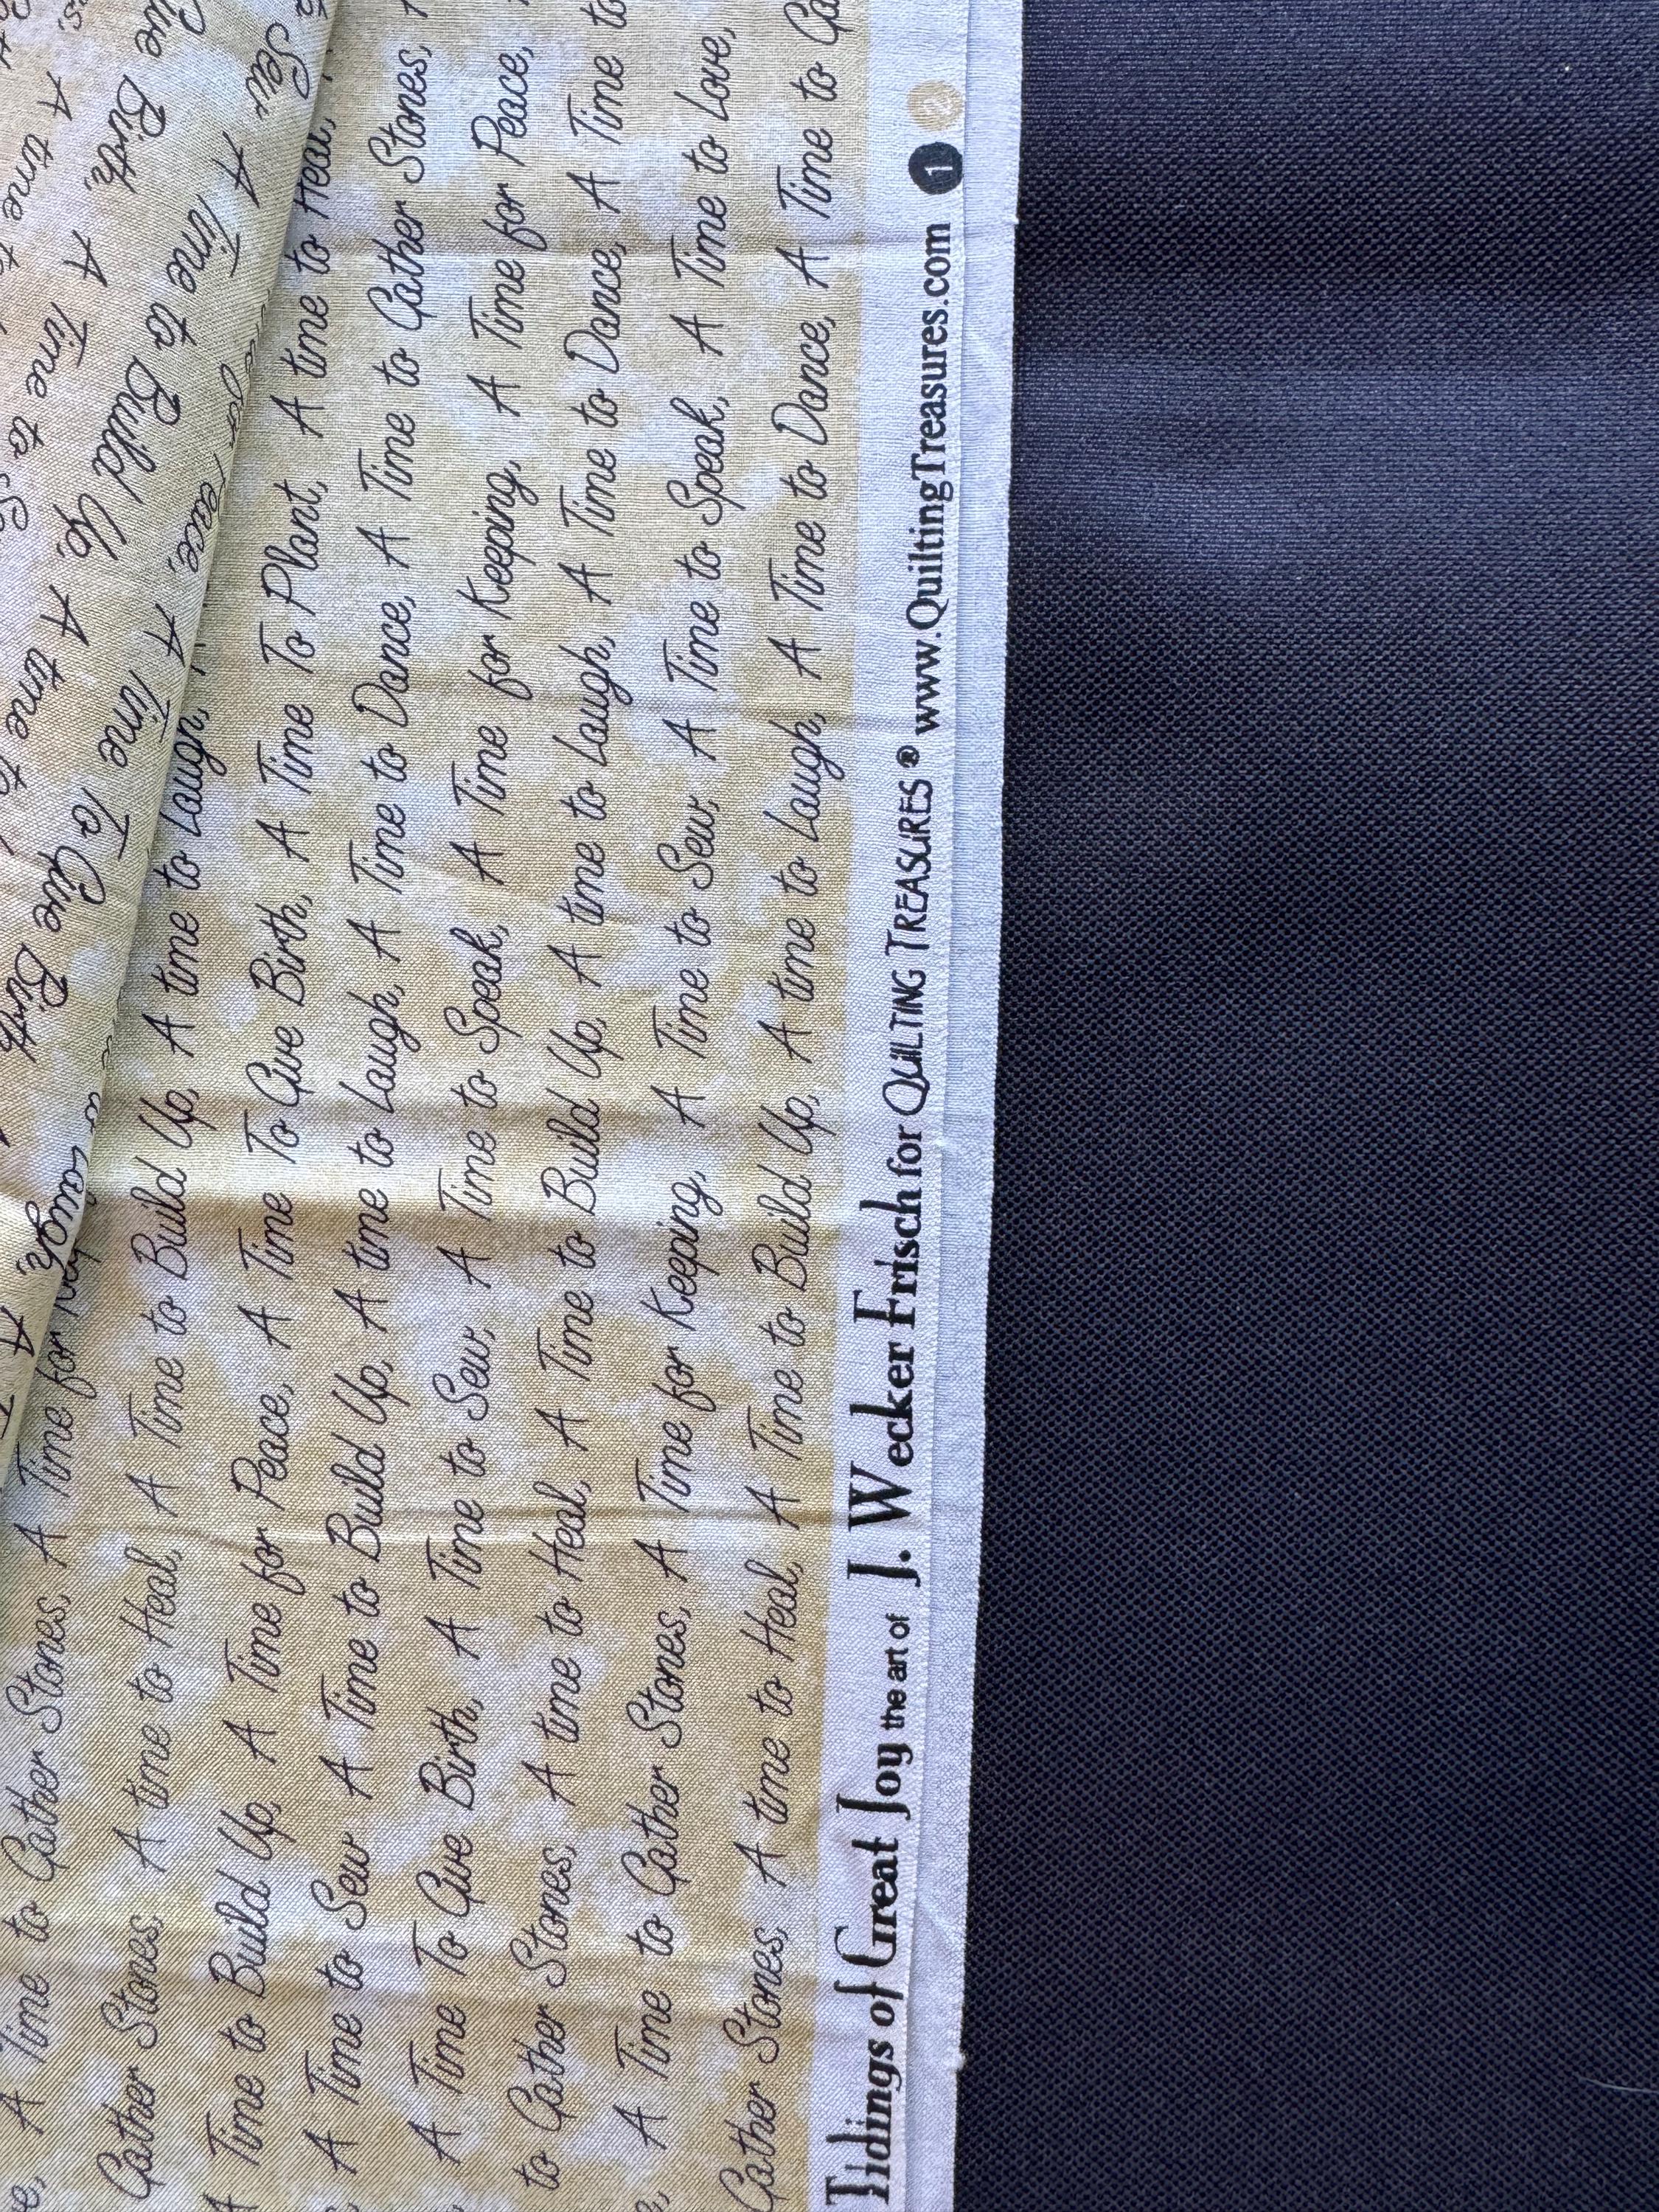 A time to
Give Birth, A Time to
Sew A Time to Build Up, A time to
Peace, A Time To Give Birth
Laugh, A
A Time to Gather Stones, A Time for
Gather Stones, A time to Heal, A Time to Build Up, A time to Laugh,
A Time to Build Up, A Time for Peace, A Time To Give Birth, A Time To Plant, A time to Heal,
A Time to Sew A Time to Build Up, A time to Laugh, A Time to Dance, A Time to Gather Stones,
A Time To Give Birth, A Time to Sew, A Time to Speak, A Time for Keeping, A Time for Peace,
to Gather Stones, A time to Heal, A Time to Build Up, A time to Laugh, A Time to Dance, A Time to
A Time to Gather Stones, A Time for Keeping, A Time to Sew, A Time to Speak, A Time to Love,
Gather Stones, A time to Heal, A Time to Build Up, A time to Laugh, A Time to Dance, A Time to Ga
Tidings of Great Joy the art of J. Wecker Frisch for QUILTING TREASURES® www.QuiltingTreasures.com 1 2